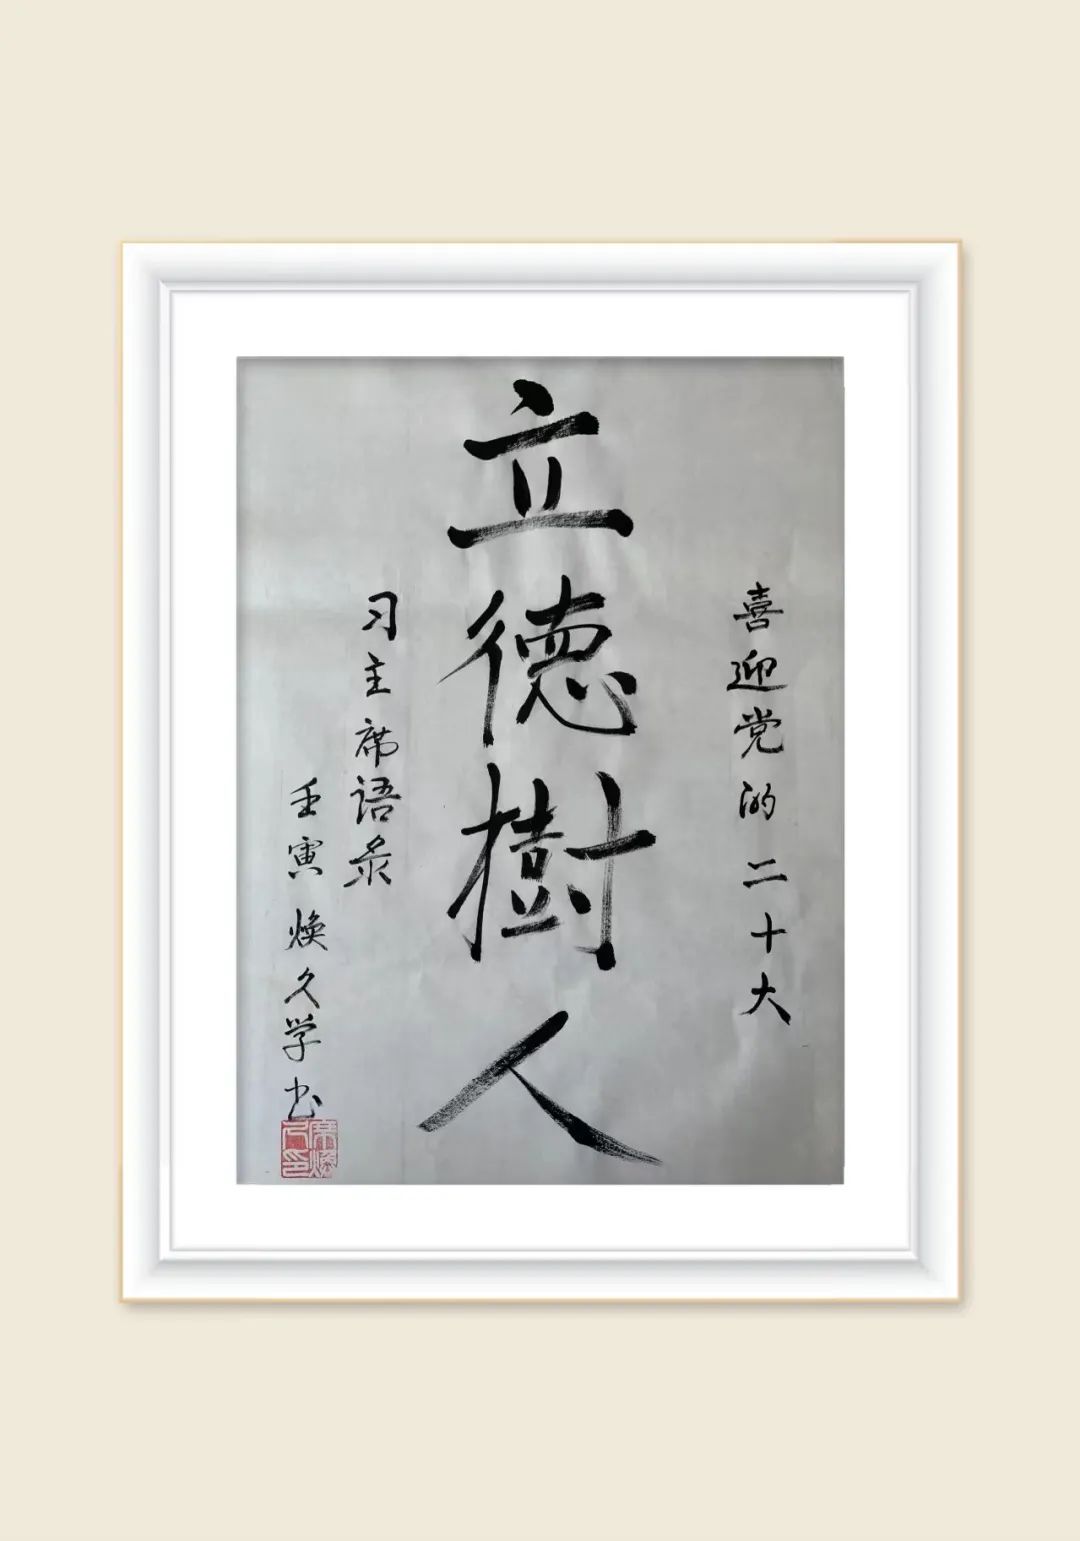 喜迎党的二十大
立德樹人
习主席语录
壬寅焕久学书